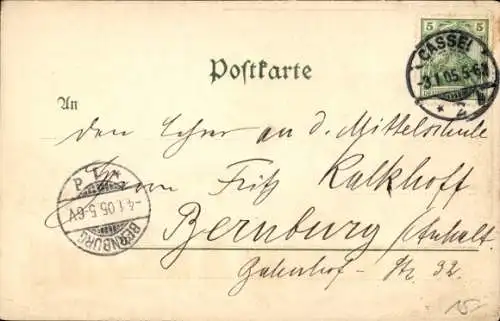 5 5
CASSEL
-3.1.05.5-6N
* 2 b
Postkarte
An
den Lehrer an d. Mittelschule
P 1 *
-4.1.05.5-6V
BERNBURG
Herrn Fritz Kalkhoff
Bernburg (Anhalt.
Bahnhof-Str. 32.